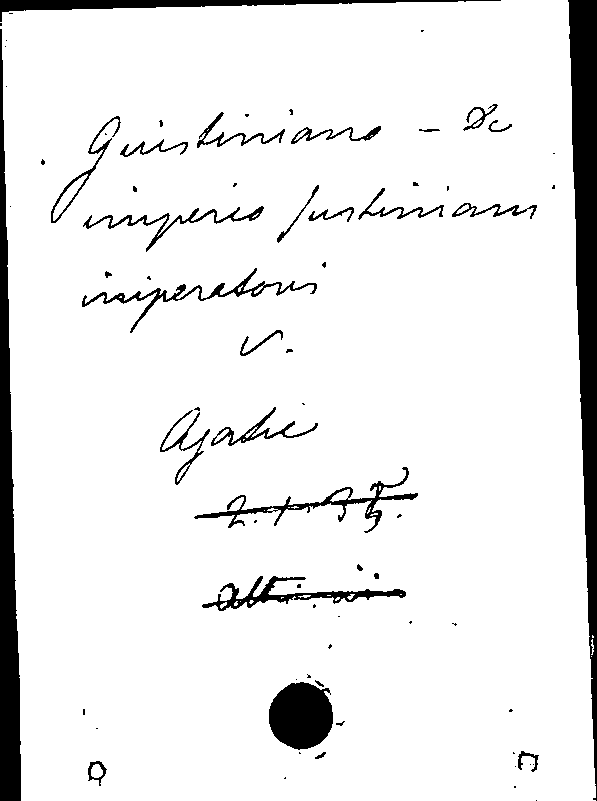 Giustiniano - De
imperio Justiniani
imperatoris
V.
Agatie